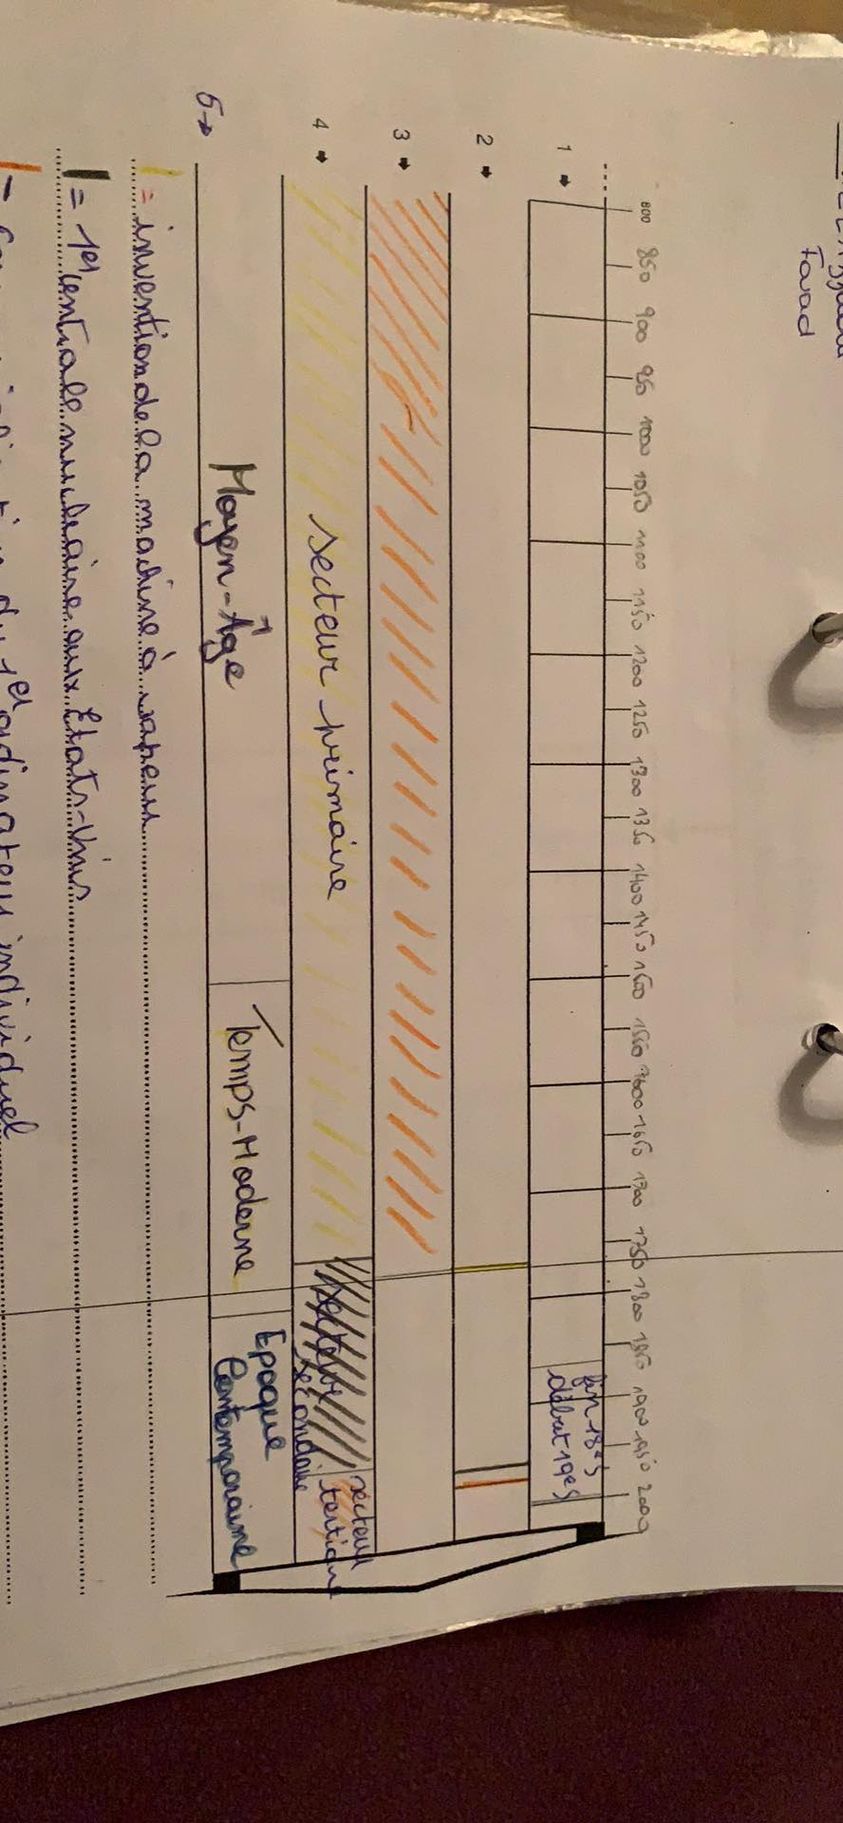 Favad
800 850 900 95 1000 1050 1100 1150 1200 1250 1300 1350 1400 1450 1500 1550 1600 1650 1700 1750 1800 1850 1900 1950 2000
1 → fin 18e s
début 19e s
2 →
3 →
4 → secteur primaire secteur secondaire secteur tertiaire
5→ Moyen-Âge Temps-Moderne Epoque Contemporaine
= invention de la machine à vapeur
= 1er centrale nucléaire aux Etats-Unis
du 1er ordinateur individuel